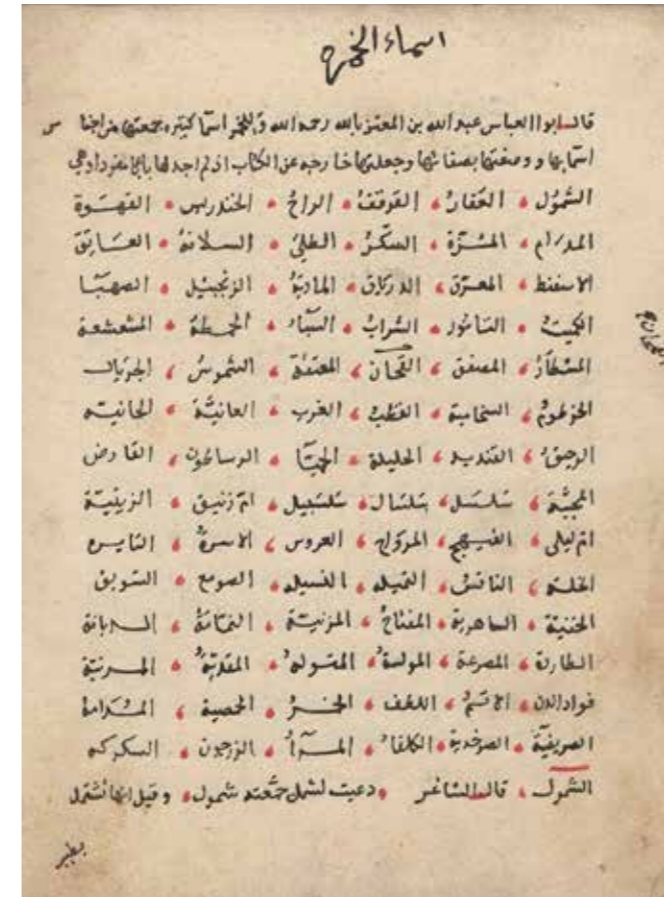 اسماء الخمره
قال ابوا العباس عبد الله بن المعتز بالله رحمه الله وللخمر اسما كثيره جمعتها من
اسمايها ووصفتها بصفاتها وجعلتها خارجه عن الكتاب اذ لم اجدها
الشمول العقار القرقف الراح الخندريس القهوة
المدام المزة السكر الطلي السلافة العاتق
الاسفنط المعرق الدرياق الماذية الزنجبيل الصهبا
الكميت التامور الشراب السباء الخمطة المشعشعة
المسطار المصفق القمحان المعتقة الشموس الجريال
الخرطوم السخامية القطب الغرب العانية الحانيه
الرحيق القنديد الحليلة الحميا الرساطون الفارض
المجبة سلسل سلسال سلسبيل ام زنبق الزيتية
ام ليلى الفيهج المروق العروس الاسرة
الخله النافس الصومع السويق
الساهرية المفتاح المزنية
المصرعة
فواد الدن اللطف الخمر الحصية المدامة
الصريفية الصرخدية الكلفا الزرجون السكركه
الشمول قال الشاعر دعيت لشمل جمعته شمول وقيل انها تشتمل